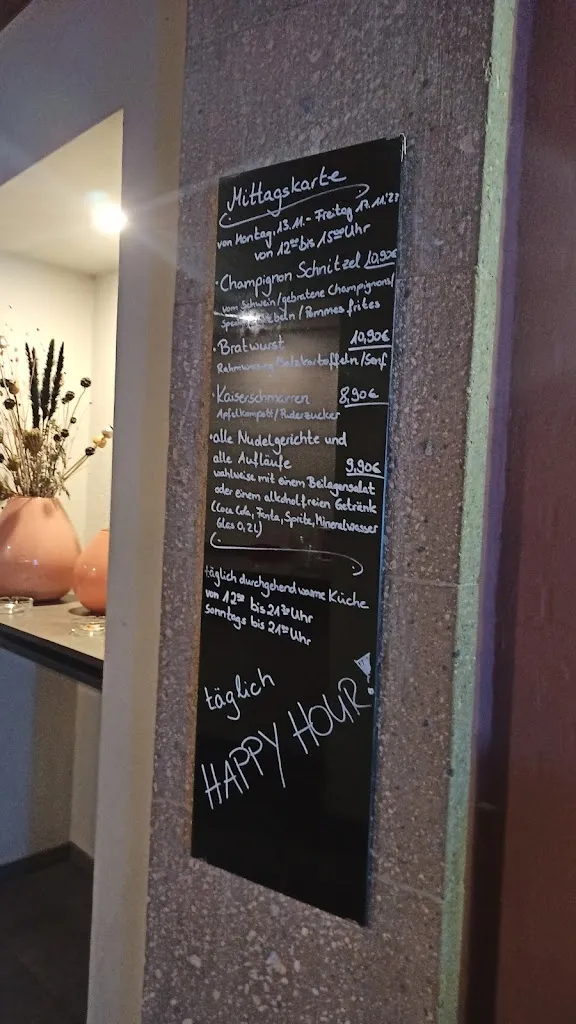 Mittagskarte
von Montag, 13.11.- Freitag 17.11.'23
von 12⁰⁰ bis 15⁰⁰ Uhr
• Champignon Schnitzel 10,90€
vom Schwein/gebratene Champignons/
/Pommes frites
• Bratwurst 10,90€
/Salzkartoffeln/Senf
• Kaiserschmarren 8,90€
Apfelkompott/Puderzucker
• alle Nudelgerichte und
alle Aufläufe 9,90€
wahlweise mit einem Beilagensalat
oder einem alkoholfreien Getränk
(Coca Cola, Fanta, Sprite, Mineralwasser
Glas 0,2l)
täglich durchgehend warme Küche
von 12⁰⁰ bis 21³⁰ Uhr
Sonntags bis 21⁰⁰ Uhr
täglich
HAPPY HOUR!